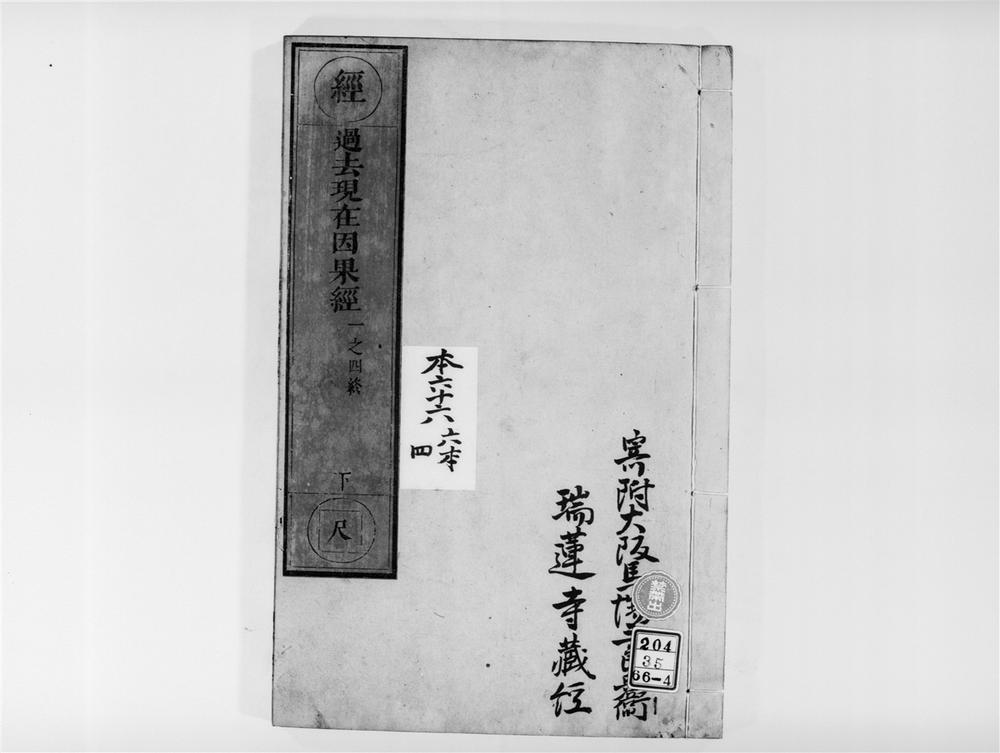 寄附大阪馬場
瑞蓮寺藏経
禁帶出
204
35
66-4
本六十六
六本
四
經
過去現在因果經
一之四終
下
尺